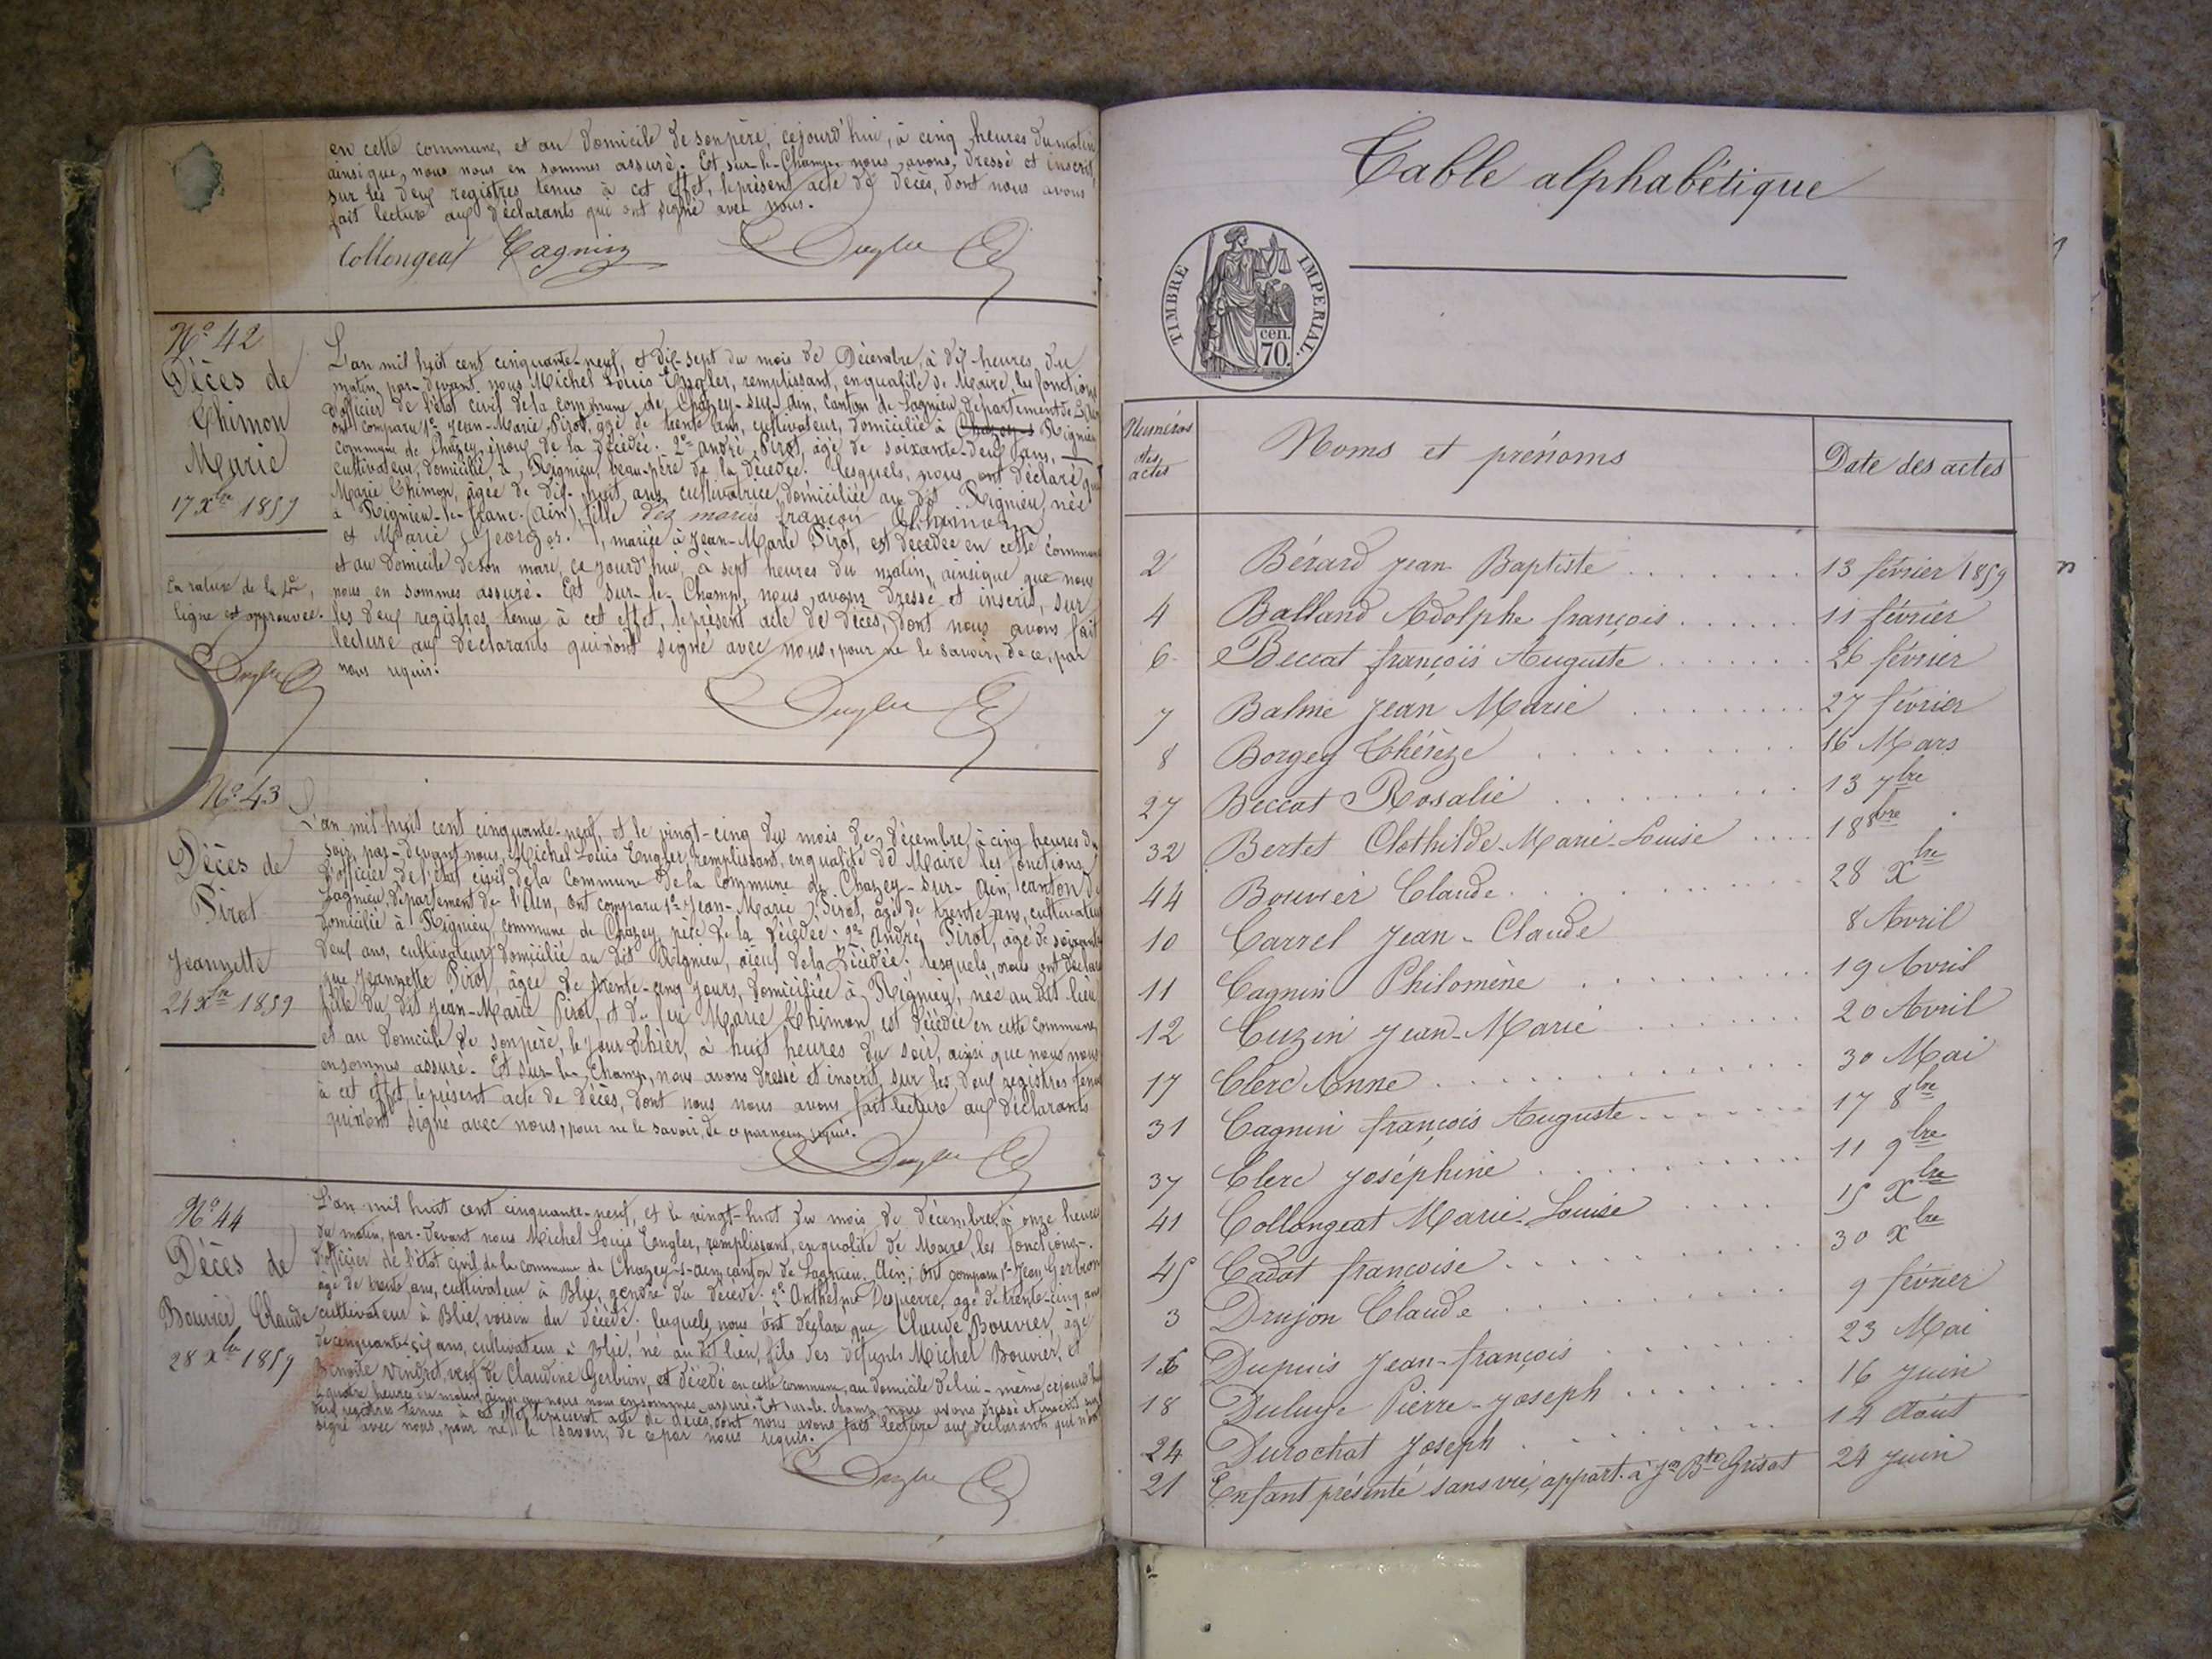 en cette commune, et au domicile de son père, cejourd'hui, à cinq heures du matin
ainsi que nous nous en sommes assuré. Et sur-le-Champ nous avons dressé et inscrit,
sur les deux registres tenus à cet effet, le présent acte de décès, dont nous avons
fait lecture aux déclarants qui ont signé avec nous.
Collongeat Cagnin
Nº 42
Décès de
Thimon
Marie
17 Xbre 1859
En rature de la
ligne est approuvée.
L'an mil huit cent cinquante-neuf, et dix-sept du mois de Décembre, à dix heures du
matin, par-devant nous Michel Louis Engler, remplissant, en qualité de Maire, les fonctions
d'officier de l'état civil de la commune de Chazey-sur-Ain, canton de Lagnieu, département de l'Ain
ont comparu 1º Jean-Marie Pirot, âgé de trente ans, cultivateur, domicilié à Chazey-s Rignieu
commune de Chazey, époux de la décédée. 2º andré Pirot, âgé de soixante-deux ans,
cultivateur, domicilié à Rignieu, beau-père de la décédée. lesquels, nous ont déclaré que
Marie Thimon, âgée de dix-huit ans, cultivatrice, domiciliée au dit Rignieu, née
à Rignieu-le-franc (Ain), fille des mariés françois Thimon
et Marie Georges, mariée à Jean-Marie Pirot, est décédée en cette commune
et au domicile de son mari, ce jourd'hui, à sept heures du matin, ainsi que que nous
nous en sommes assuré. Et sur-le-Champ, nous avons dressé et inscrit, sur
les deux registres tenus à cet effet, le présent acte de décès, dont nous avons fait
lecture aux déclarants qui n'ont signé avec nous, pour ne le savoir, de ce, par
nous requis.
Nº 43
Décès de
Pirot
Jeannette
24 Xbre 1859
L'an mil huit cent cinquante-neuf, et le vingt-cinq du mois de décembre, à cinq heures du
soir, par-devant nous, Michel Louis Engler, remplissant, en qualité de Maire les fonctions
d'officier de l'état civil de la Commune de la Commune de Chazey-sur-Ain, canton de
Lagnieu, département de l'Ain, ont comparu 1º Jean-Marie Pirot, âgé de trente ans, cultivateur
domicilié à Rignieu, commune de Chazey, père de la décédée. 2º André Pirot, âgé de soixante
deux ans, cultivateur, domicilié au dit Rignieu, aïeul de la Décédée; lesquels, nous ont déclaré
que Jeannette Pirot, âgée de trente-cinq jours, domiciliée à Rignieu, née au dit lieu
fille du dit Jean-Marie Pirot, et de feu Marie Thimon, est décédée en cette commune,
et au domicile de son père, le jour d'hier, à huit heures du soir, ainsi que nous nous
en sommes assuré. Et sur-le-Champ, nous avons dressé et inscrit, sur les deux registres tenus
à cet effet, le présent acte de décès, dont nous nous avons fait lecture aux déclarants
qui n'ont signé avec nous, pour ne le savoir, de ce par nous requis.
Nº 44
Décès de
Bouvier Claude
28 Xbre 1859
L'an mil huit cent cinquante-neuf, et le vingt-huit du mois de décembre, à onze heures
du matin, par-devant nous Michel Louis Engler, remplissant, en qualité de Maire, les fonctions
d'officier de l'état civil de la commune de Chazey-s-Ain, canton de Lagnieu, Ain; ont comparu 1º Jean Gerbion
âgé de trente ans, cultivateur à Blie, gendre du décédé. 2º Anthelme Despierre, âgé de trente-cinq ans
cultivateur à Blie, voisin du décédé. lesquels, nous ont déclaré que Claude Bouvier, âgé
de cinquante-six ans, cultivateur à Blie, né au dit lieu, fils des défunts Michel Bouvier, et
Benoite Vindret, veuf de Claudine Gerbion, est décédé en cette commune, au domicile de lui-même, cejourd'hui
à quatre heures du matin, ainsi que nous nous en sommes assuré. Et sur-le-champ, nous avons dressé et inscrit sur
deux registres tenus à cet effet le présent acte de décès, dont nous avons fait lecture aux déclarants qui n'ont
signé avec nous, pour ne le savoir, de ce par nous requis.
Table alphabétique
TIMBRE IMPERIAL.
cen.
70.
Numéros des actes Noms et prénoms Date des actes
2 Bérard Jean Baptiste 13 février 1859
4 Balland Adolphe françois 11 février
6 Beccat françois Auguste 26 février
7 Balme Jean Marie 27 février
8 Borgey Thérèze 16 Mars
27 Beccat Rosalie 13 7bre
32 Bertet Clothilde-Marie-Louise 18 8bre
44 Bouvier Claude 28 Xbre
10 Carrel Jean-Claude 8 Avril
11 Cagnin Philomène 19 Avril
12 Cuzin Jean-Marie 20 Avril
17 Clerc Anne 30 Mai
31 Cagnin françois Auguste 17 8bre
37 Clerc Joséphine 11 9bre
41 Collongeat Marie-Louise 15 Xbre
45 Cadot francoise 30 Xbre
3 Drujon Claude 9 février
16 Dupuis Jean-françois 23 Mai
18 Duluye Pierre-Joseph 16 Juin
24 Durochat Joseph 14 Août
21 Enfant présenté sans vie, appart. à Jn Bte Grisat 24 Juin